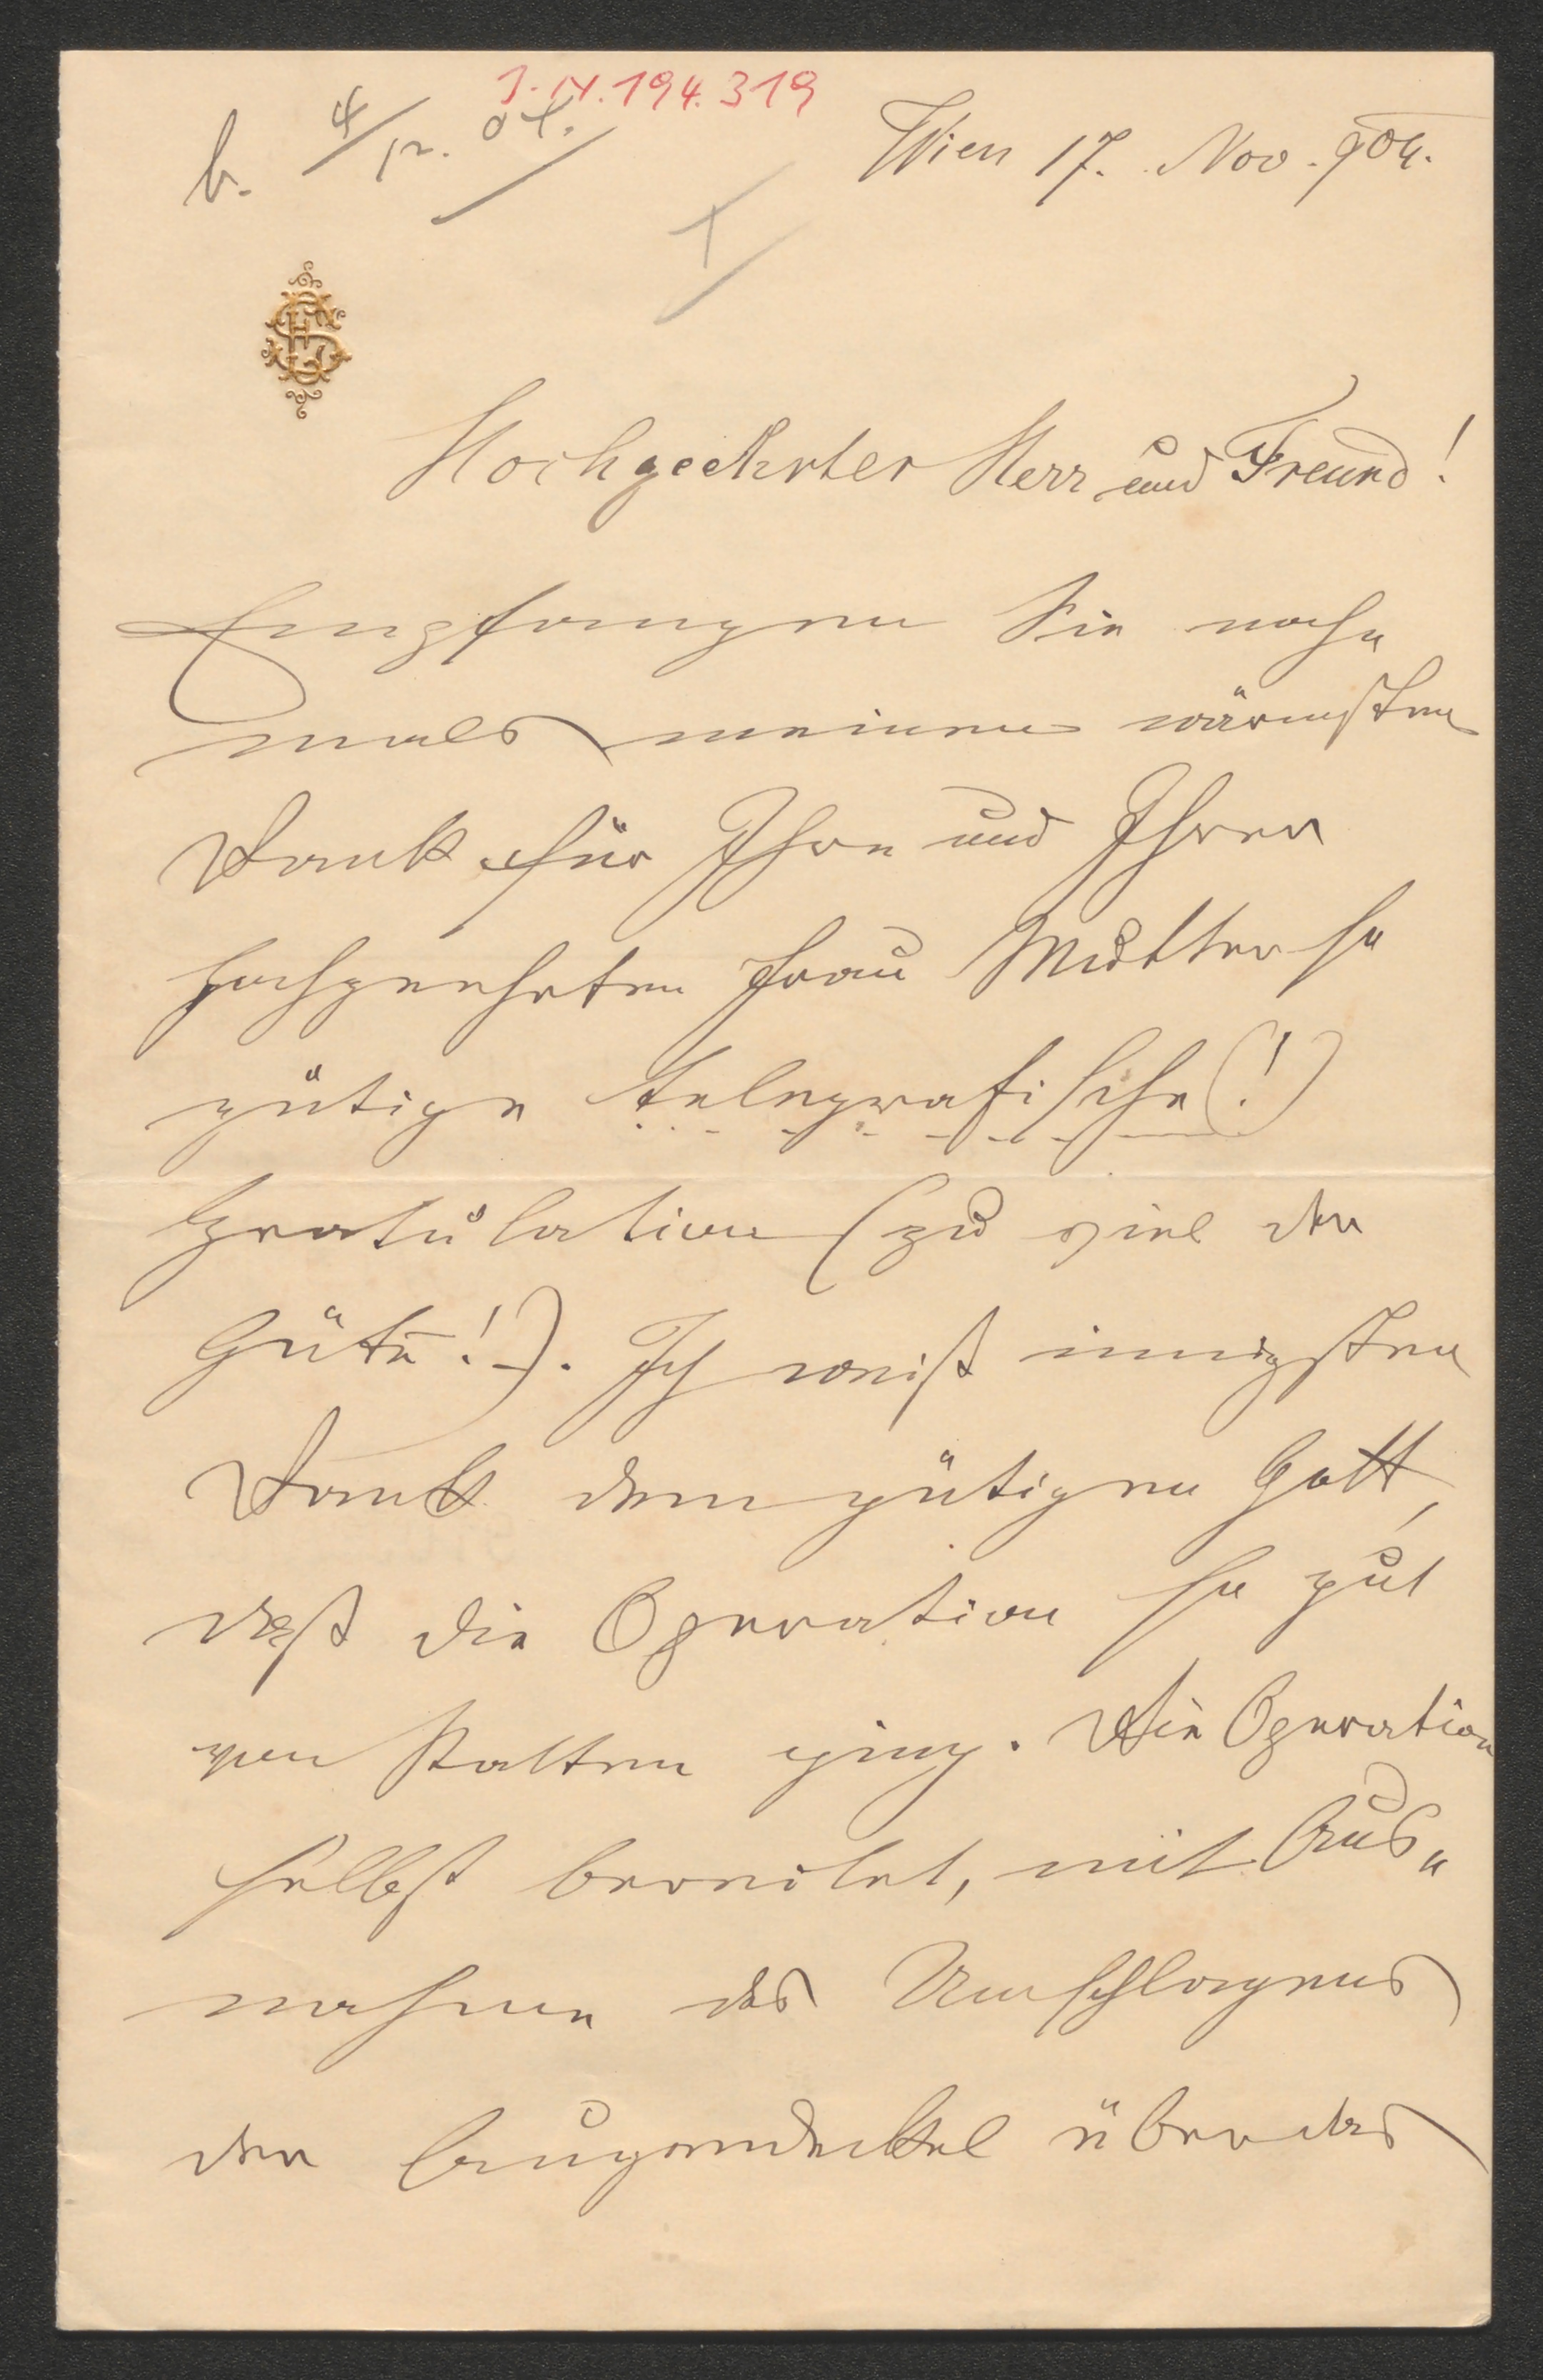 I.N. 194.319
b. 4/12. 04.
Wien 17. Nov. 904.
Hochgeehrter Herr und Freund!
Empfangen Sie noch„
mals meinen wärmsten
Dank für Ihre und Ihrer
hochgeehrten Frau Mutter so
gütige telegrafische (!)
Gratulation (zu viel der
Güte!). Ich weiß innigsten
Dank dem gütigen Gott,
daß die Operation so gut
von Statten ging. Die Operation
selbst bereitet, mit Aus„
nahme des Umschlagens
der Augendeckel über das